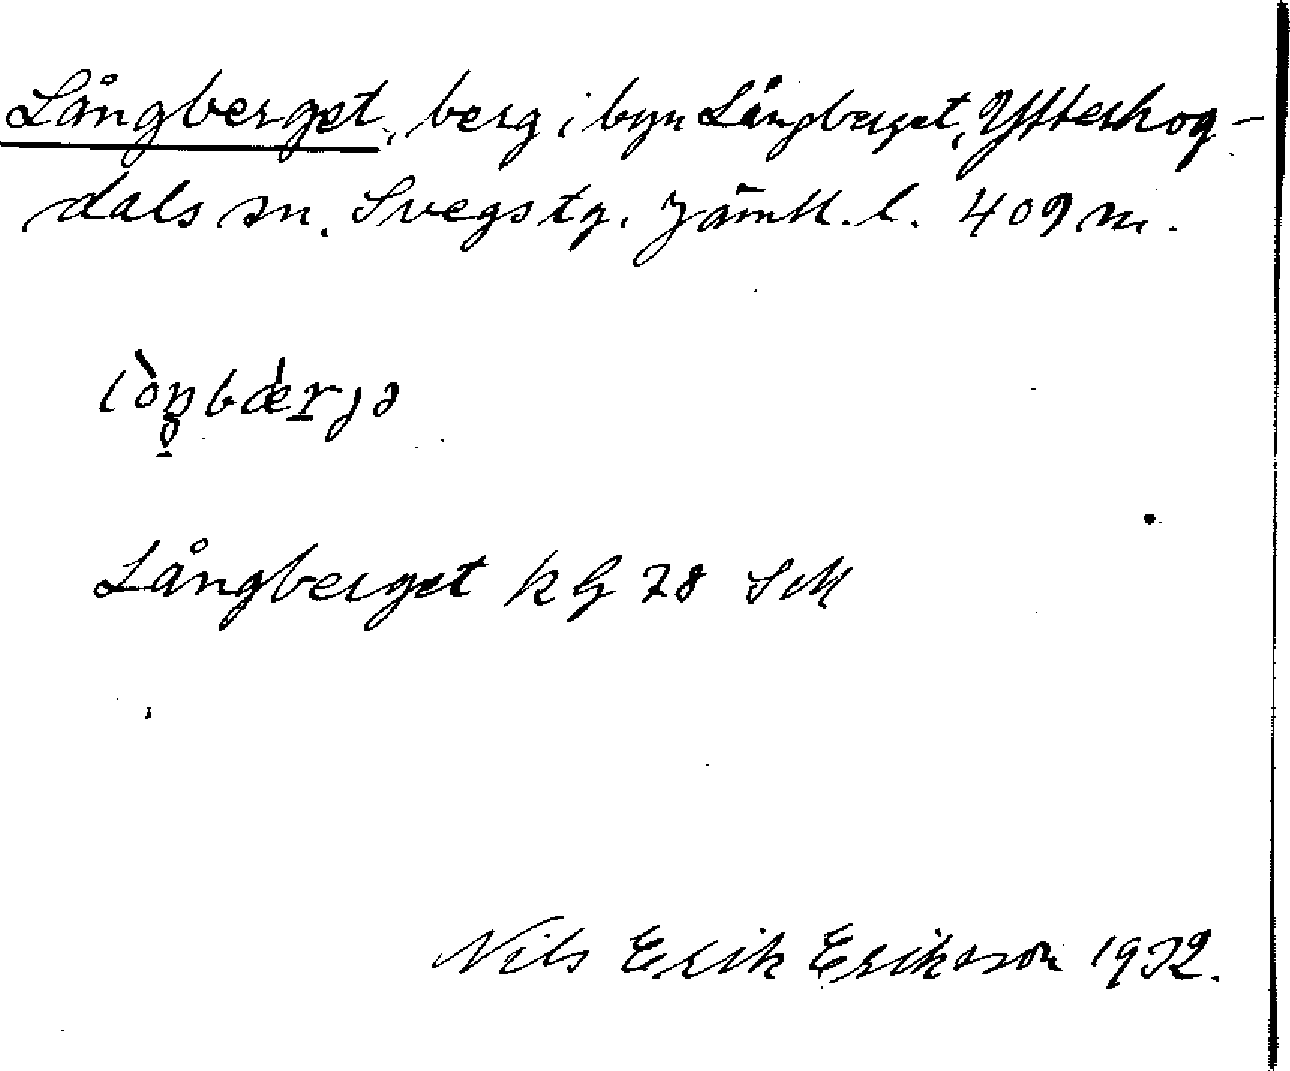 Långberget, berg i byn Långberget, Ytterhog-
dals sn. Svegs tg. Jämtl. l. 409 m.
Långberget k G 78 SM
Nils Erik Erikson 1932.